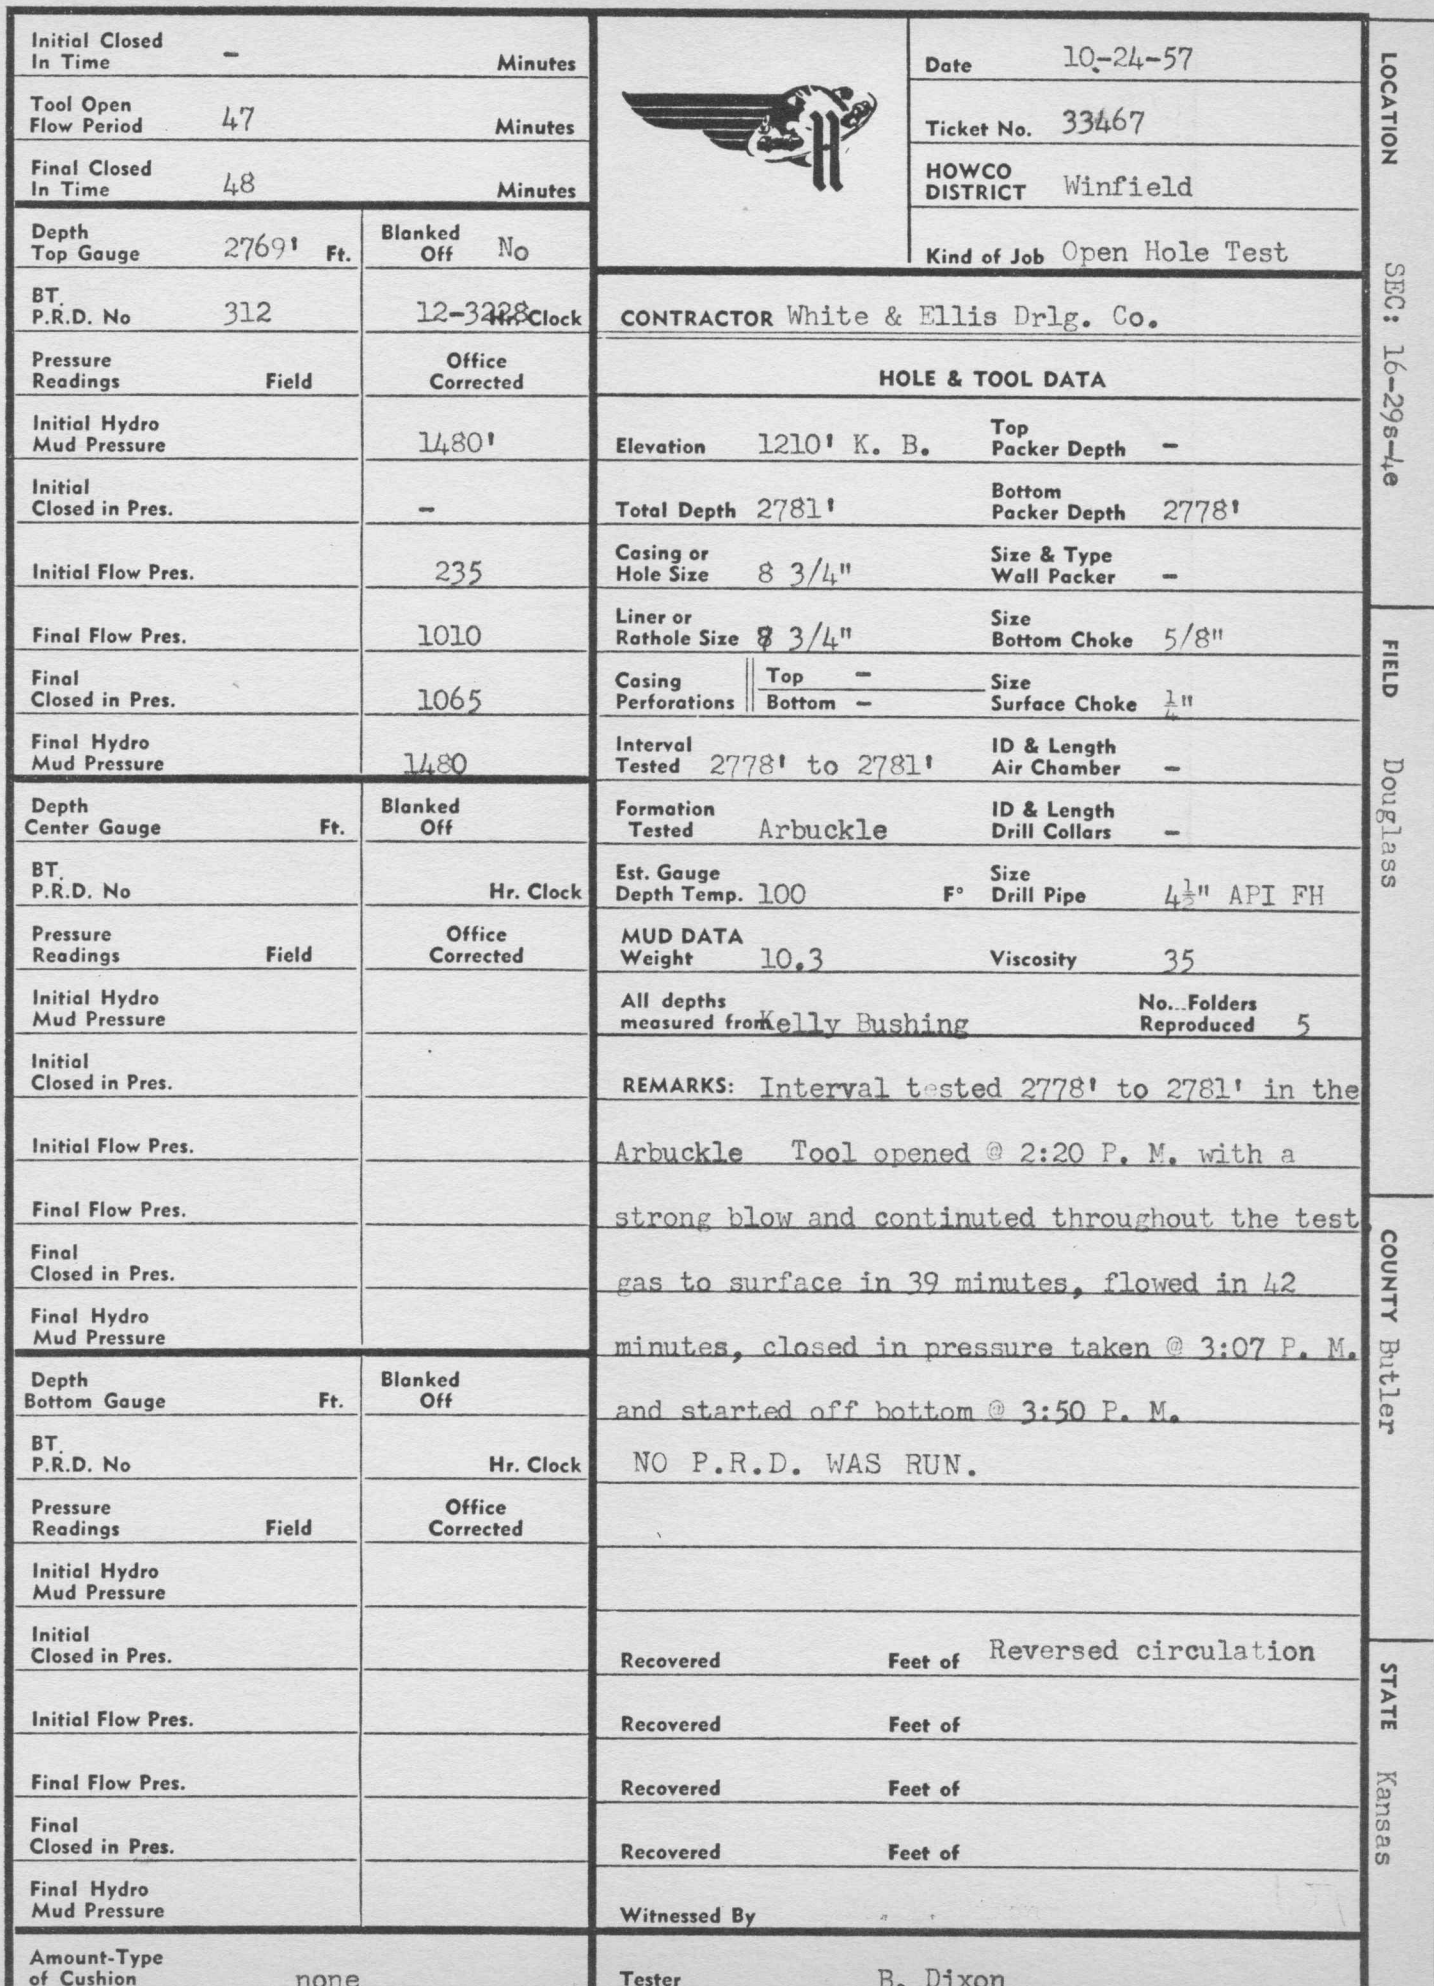 Initial Closed
In Time - Minutes
Tool Open
Flow Period 47 Minutes
Final Closed
In Time 48 Minutes
Depth
Top Gauge 2769' Ft.
Blanked
Off No
BT.
P.R.D. No 312 12-3228 Hr. Clock
Pressure
Readings Field
Office
Corrected
Initial Hydro
Mud Pressure 1480'
Initial
Closed in Pres. -
Initial Flow Pres. 235
Final Flow Pres. 1010
Final
Closed in Pres. 1065
Final Hydro
Mud Pressure 1480
Depth
Center Gauge Ft.
Blanked
Off
BT.
P.R.D. No Hr. Clock
Pressure
Readings Field
Office
Corrected
Initial Hydro
Mud Pressure
Initial
Closed in Pres.
Initial Flow Pres.
Final Flow Pres.
Final
Closed in Pres.
Final Hydro
Mud Pressure
Depth
Bottom Gauge Ft.
Blanked
Off
BT.
P.R.D. No Hr. Clock
Pressure
Readings Field
Office
Corrected
Initial Hydro
Mud Pressure
Initial
Closed in Pres.
Initial Flow Pres.
Final Flow Pres.
Final
Closed in Pres.
Final Hydro
Mud Pressure
Amount-Type
of Cushion none
H
Date 10-24-57
Ticket No. 33467
HOWCO
DISTRICT Winfield
Kind of Job Open Hole Test
CONTRACTOR White & Ellis Drlg. Co.
HOLE & TOOL DATA
Elevation 1210' K. B.
Top
Packer Depth -
Total Depth 2781'
Bottom
Packer Depth 2778'
Casing or
Hole Size 8 3/4"
Size & Type
Wall Packer -
Liner or
Rathole Size 8 3/4"
Size
Bottom Choke 5/8"
Casing
Perforations
Top -
Bottom -
Size
Surface Choke ¼"
Interval
Tested 2778' to 2781'
ID & Length
Air Chamber -
Formation
Tested Arbuckle
ID & Length
Drill Collars -
Est. Gauge
Depth Temp. 100 F°
Size
Drill Pipe 4½" API FH
MUD DATA
Weight 10.3 Viscosity 35
All depths
measured from Kelly Bushing
No...Folders
Reproduced 5
REMARKS: Interval tested 2778' to 2781' in the
Arbuckle Tool opened @ 2:20 P. M. with a
strong blow and continuted throughout the test,
gas to surface in 39 minutes, flowed in 42
minutes, closed in pressure taken @ 3:07 P. M.
and started off bottom @ 3:50 P. M.
NO P.R.D. WAS RUN.
Recovered Feet of Reversed circulation
Recovered Feet of
Recovered Feet of
Recovered Feet of
Witnessed By
Tester B. Dixon
LOCATION SEC: 16-29s-4e
FIELD Douglass
COUNTY Butler
STATE Kansas